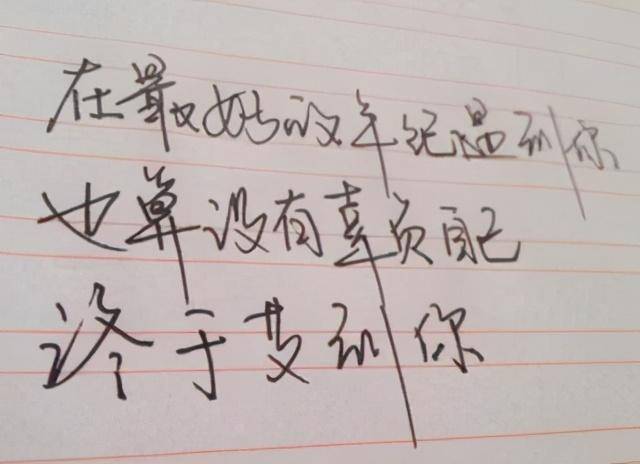 在最好的年纪遇到你
也算没有辜负自己
终于等到你